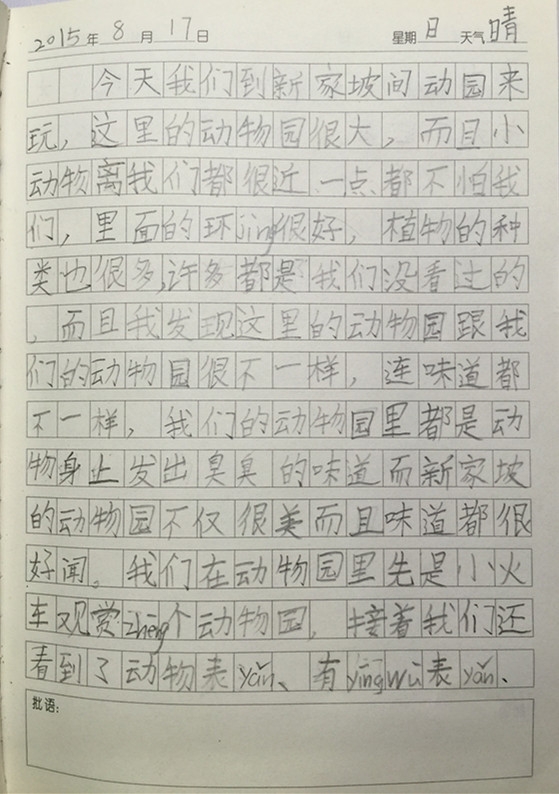 2015年8月17日 星期日 天气晴
今天我们到新家坡间动园来
玩，这里的动物园很大，而且小
动物离我们都很近、一点都不怕我
们，里面的环jìng很好、植物的种
类也很多,许多都是我们没看过的
，而且我发现这里的动物园跟我
们的动物园很不一样，连味道都
不一样，我们的动物园里都是动
物身止发出臭臭的味道而新家坡
的动物园不仅很美而且味道都很
好闻。我们在动物园里先是小火
车观赏zhěng个动物园，接着我们还
看到了动物表yǎn、有yīngwǔ表yǎn、
批语：